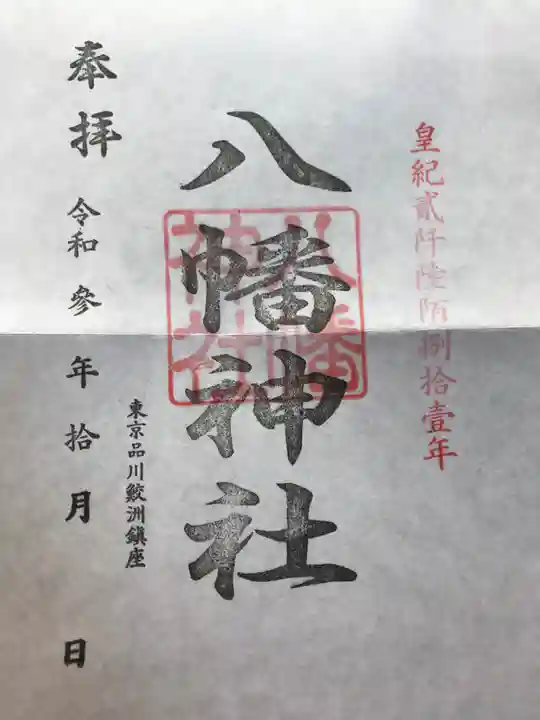 皇紀貳阡陸陌捌拾壹年
八幡神社
八幡
神社
東京品川鮫洲鎮座
奉拝
令和參年拾月 日